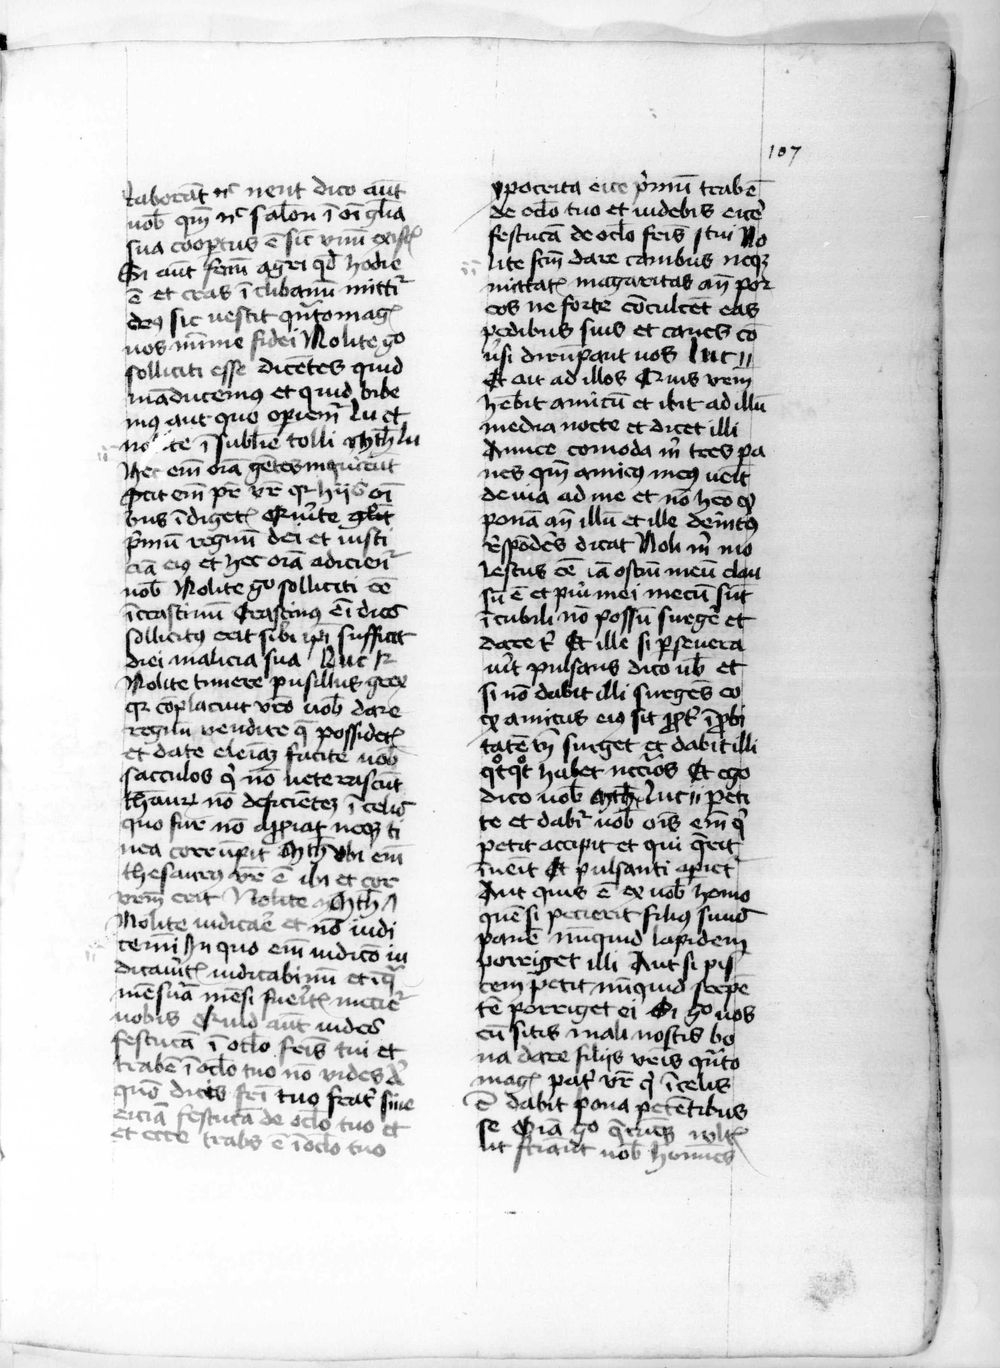 107
laborāt nc̄ nent dico aūt
uob̄ qm̄ nc̄ salōn ī oī gl̄ia
sua coop̄tus ē sic vnū ex istꝭ
Si aūt fenū agri qd̄ hodie
ē et cras ī clibanū mittr̄
deꝰ sic uestit qn̄tomagꝭ
uos mīnime fidei Nolite go
solliciti esse dicētes quid
māducemꝰ et quid bibe
mꝰ aut quo opiemr̄ Lu et
nolite ī sublīe tolli mth̄ Lu
Hec em̄ oīa gētes inquirūt
Scit em̄ pr̄ vr̄ qr hijs oī
bus īdigetꝭ Querite
p̄mū regnū dei et iusti
ciā eiꝰ et hec oīa adicienr̄
uob̄ Nolite go solliciti eē
īcrastinū Crastinꝰ eī dies
sollicitꝰ erit sibi ip̄i sufficit
diei malicia sua Luc 12
Nolite timere pusillus grex
qr cōplacuit vr̄o uob̄ dare
regnū vendite q̄ possidetꝭ
et date eleīaꝫ facite uob̄
sacculos q̄ nō ueterascūt
thāur nō deficiēteꝫ ī celis
quo fur nō ap̄piat neqꝫ ti
nea corrūpit mth̄ vbi em̄
thesaurꝰ vr̄ ē ibi et cor
vrm̄ erit Nolite mth̄ 7
Nolite iudicar̄e et nō iudi
cemī In quo em̄ iudicō iu
dicaūitꝭ iudicabimī et ī q̄
mēsura mēsi fueritꝭ meciet̄
uobis Quid aūt uides
festucā ī oclo frīs tui et
trabē ī oclo tuo nō vides Ar̄
quōo dicis frī tuo frat̄ sine
eiciā festucā de oclo tuo et
et ecce trabs ē ī oclo tuo
ypocrita eice p̄mū trabē
de oclo tuo et uidebis eicē
festucā de oclo fris tui No
lite scm̄ dare canibus neqꝫ
mittatꝭ magaritas an̄ por
cos ne forte cōculcēt eas
pedibus suis et canes cō
uersi dirūpant uos Luc 11
Et ait ad illos Quis vrm̄
hēbit amicū et ibit ad illū
media nocte et dicet illi
Amice comoda m̄ tres pa
nes qm̄ amicꝰ meꝰ uēit
de via ad me et nō hēo qd̄
ponā an̄ illū et ille deītꝰ
rn̄spōdēs dicat Noli m̄ mo
lestus eē iā ostiū meū clau
sū ē et pūi mei mecū sūt
ī cubili nō possū surgē et
dare t̄ Et ille si p̄seuera
uit pulsans dico ub̄ et
si nō dabit illi surgēs eo
qd̄ amicus eiꝰ sit ppt̄ īprobi
tatē tn̄ surget et dabit illi
qͦtqͦt habet nccīos Et ego
dico uob̄ mth̄ Luc 11 peti
te et dabit̄ uob̄ ōīs em̄ q̄
petit accipit et qui q̄rit
īuēit Et pulsanti apiet̄
Aut quis ē ex uob̄ homo
quē si pecierit filiꝰ suus
panē nūquid lapidem
porriget illi Aut si pis
cem petit nūquid serpē
tē porriget ei Si go uos
cū sitis mali nostis bo
na dare filijs vr̄is qn̄to
magꝭ pat̄ vr̄ q̄ ī celis
ē dabit bona petētibus
se Oīa go q̄cūqꝫ vultꝭ
ut faciāt uob̄ hoīnes